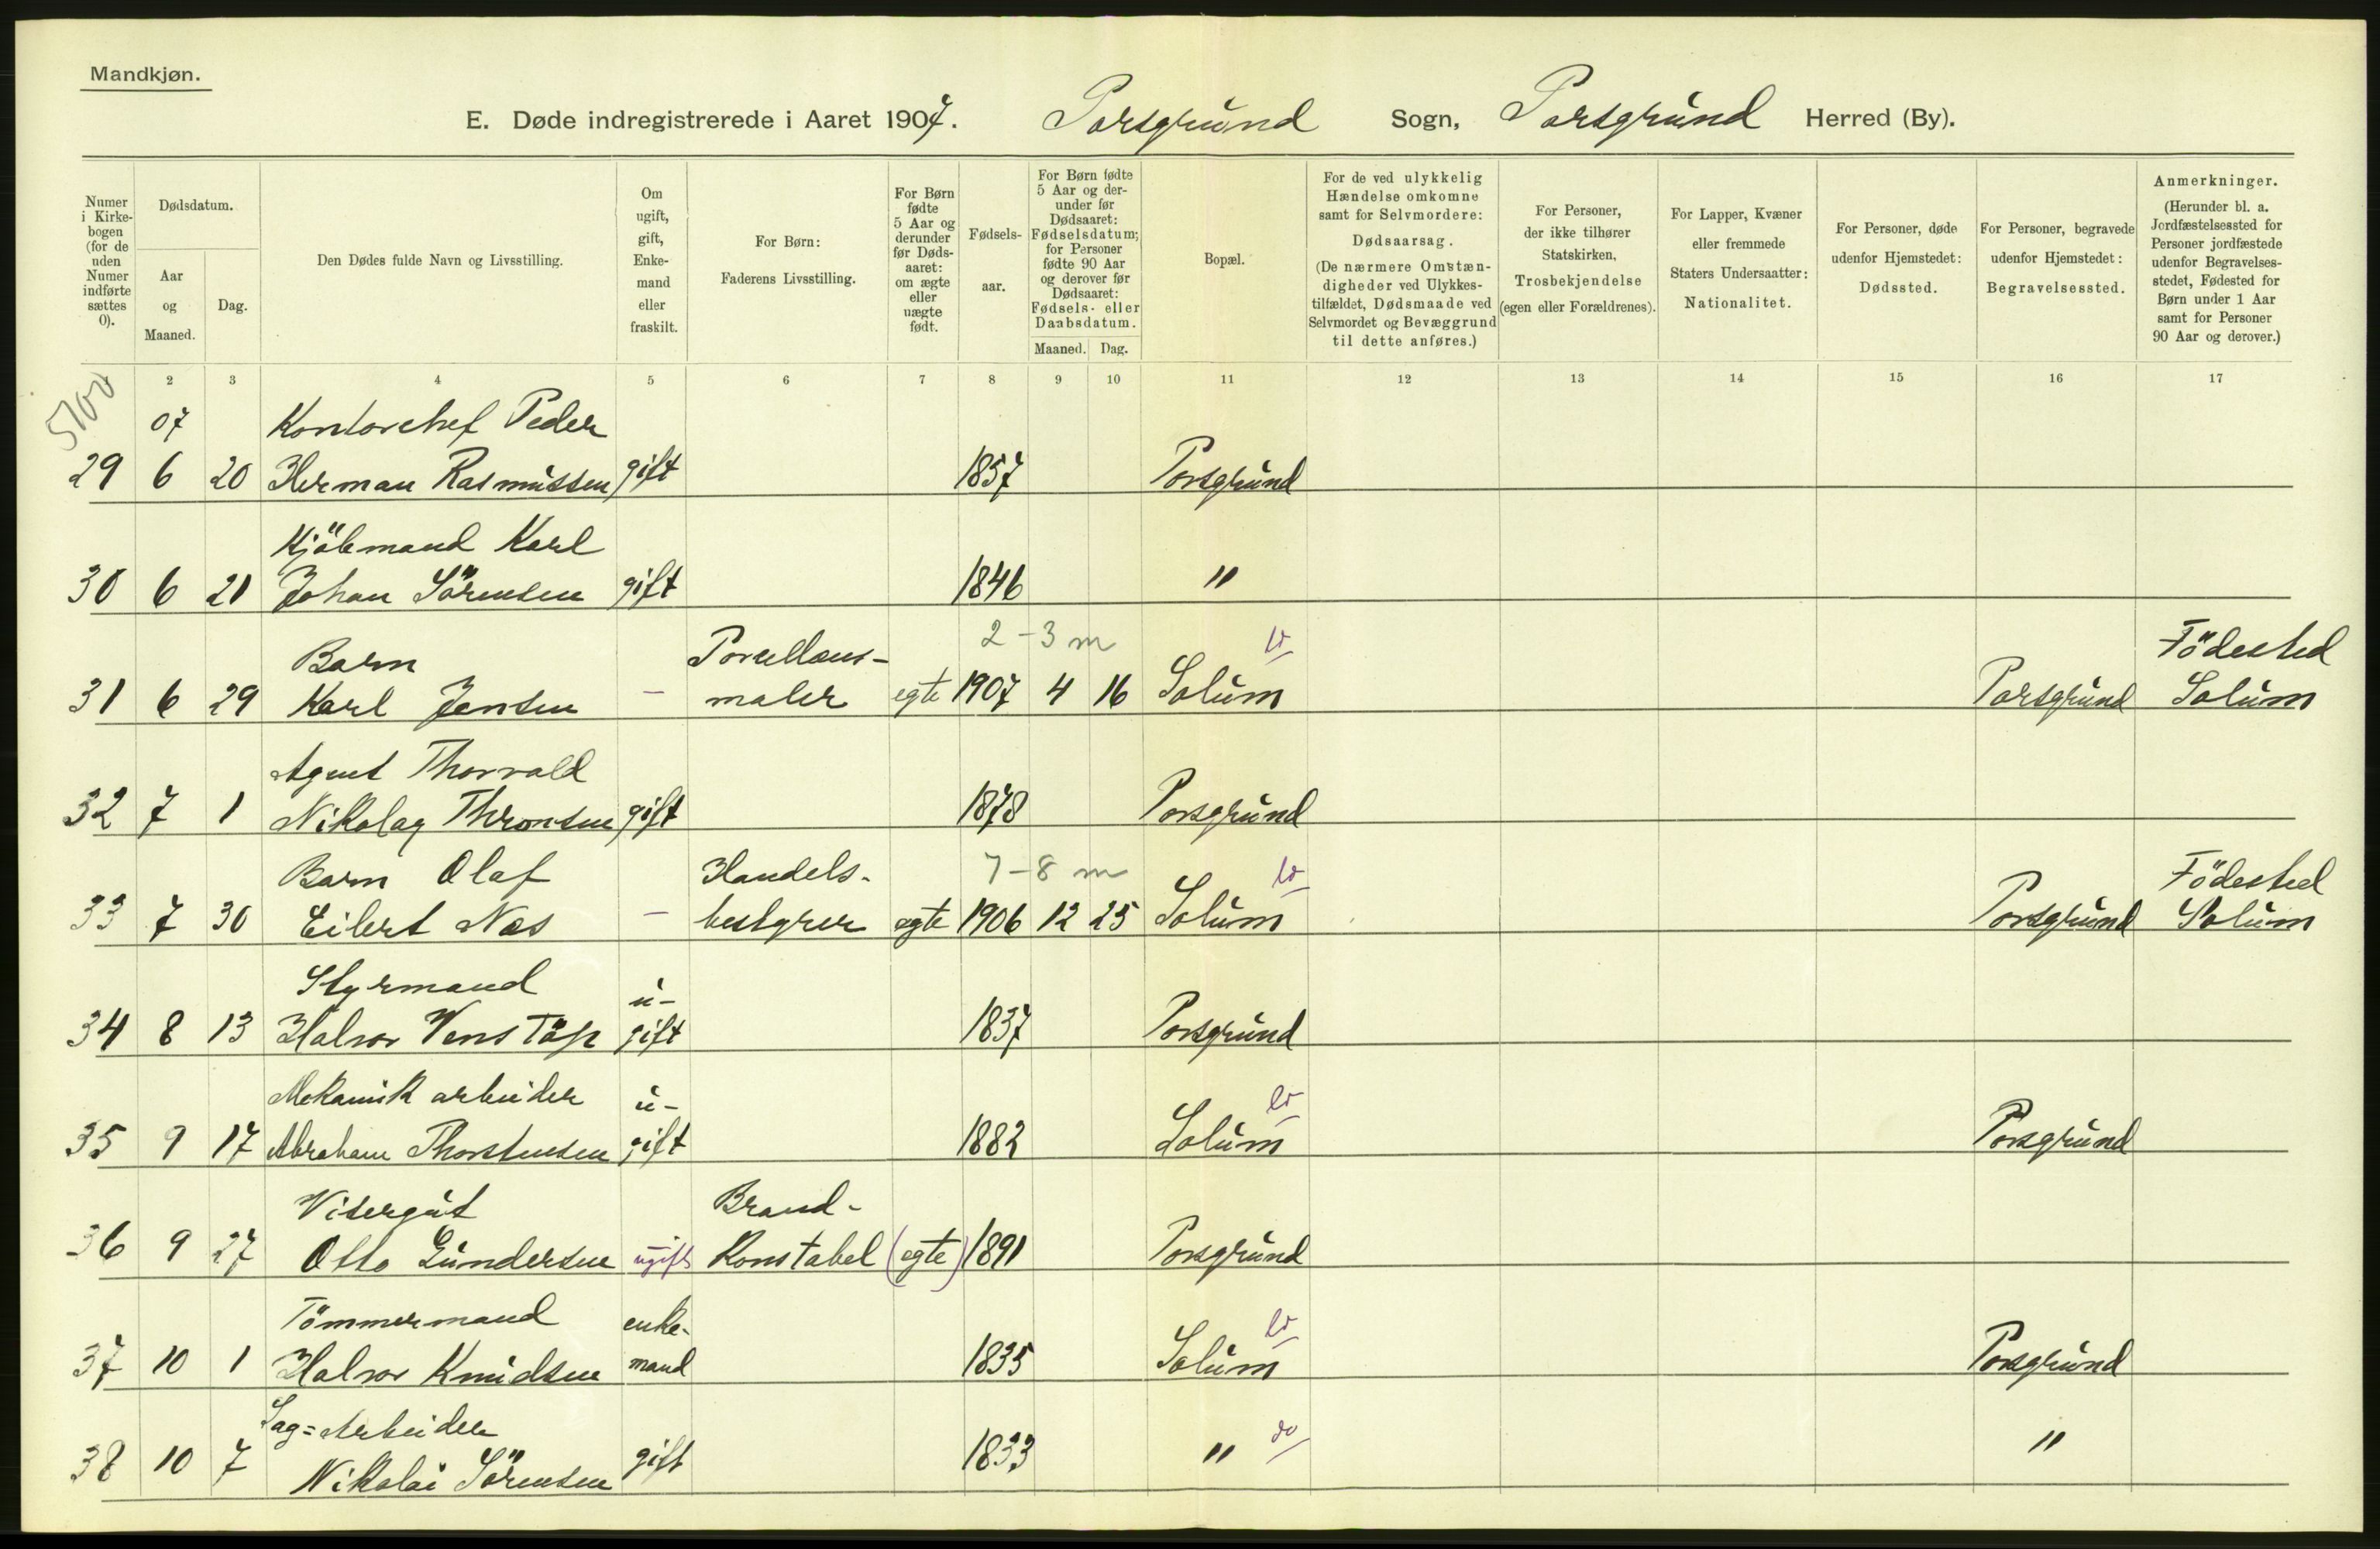 Mandkjøn.
E. Døde indregistrerede i Aaret 1907. Porsgrund Sogn, Porsgrund Herred (By).
Numer i Kirkebogen (for de uden Numer indførte sættes 0).
Dødsdatum.
Aar og Maaned.
Dag.
Den Dødes fulde Navn og Livsstilling.
Om ugift, gift, Enkemand eller fraskilt.
For Børn: Faderens Livsstilling.
For Børn fødte 5 Aar og derunder før Dødsaaret: om ægte eller uægte født.
Fødselsaar.
For Børn fødte 5 Aar og derunder før Dødsaaret: Fødselsdatum; for Personer fødte 90 Aar og derover før Dødsaaret: Fødsels- eller Daabsdatum.
Maaned. Dag.
Bopæl.
For de ved ulykkelig Hændelse omkomne samt for Selvmordere: Dødsaarsag. (De nærmere Omstændigheder ved Ulykkestilfældet, Dødsmaade ved Selvmordet og Bevæggrund til dette anføres.)
For Personer, der ikke tilhører Statskirken, Trosbekjendelse (egen eller Forældrenes).
For Lapper, Kvæner eller fremmede Staters Undersaatter: Nationalitet.
For Personer, døde udenfor Hjemstedet: Dødssted.
For Personer, begravede udenfor Hjemstedet: Begravelsessted.
Anmerkninger. (Herunder bl. a. Jordfæstelsessted for Personer jordfæstede udenfor Begravelsesstedet, Fødested for Børn under 1 Aar samt for Personer 90 Aar og derover.)
2 3 4 5 6 7 8 9 10 11 12 13 14 15 16 17
5700
07 Kontorchef Peder
29 6 20 Herman Rasmussen gift 1857 Porsgrund
Kjöbmand Karl
30 6 21 Johan Sörensen gift 1846 "
Barn Porcellæns- 2-3 m Födested
31 6 29 Karl Jensen – maler egte 1907 4 16 Solum Porsgrund Solum
Agent Thorvald
32 7 1 Nikolay Thronsen gift 1878 Porsgrund
Barn Olaf Handels- 7-8 m Födested
33 7 30 Eilert Næs – bestyrer egte 1906 12 25 Solum Porsgrund Solum
Styrmand u-
34 8 13 Halvor Venstöp gift 1837 Porsgrund
Mekanik arbeider u-
35 9 17 Abraham Thorstensen gift 1882 Solum Porsgrund
Visergut Brand-
36 9 27 Otto Gundersen ugift Konstabel (egte) 1891 Porsgrund
Tömmermand enke-
37 10 1 Halvor Knudsen mand 1835 Solum Porsgrund
Sag=Arbeider
38 10 7 Nikolai Sörensen gift 1833 " "